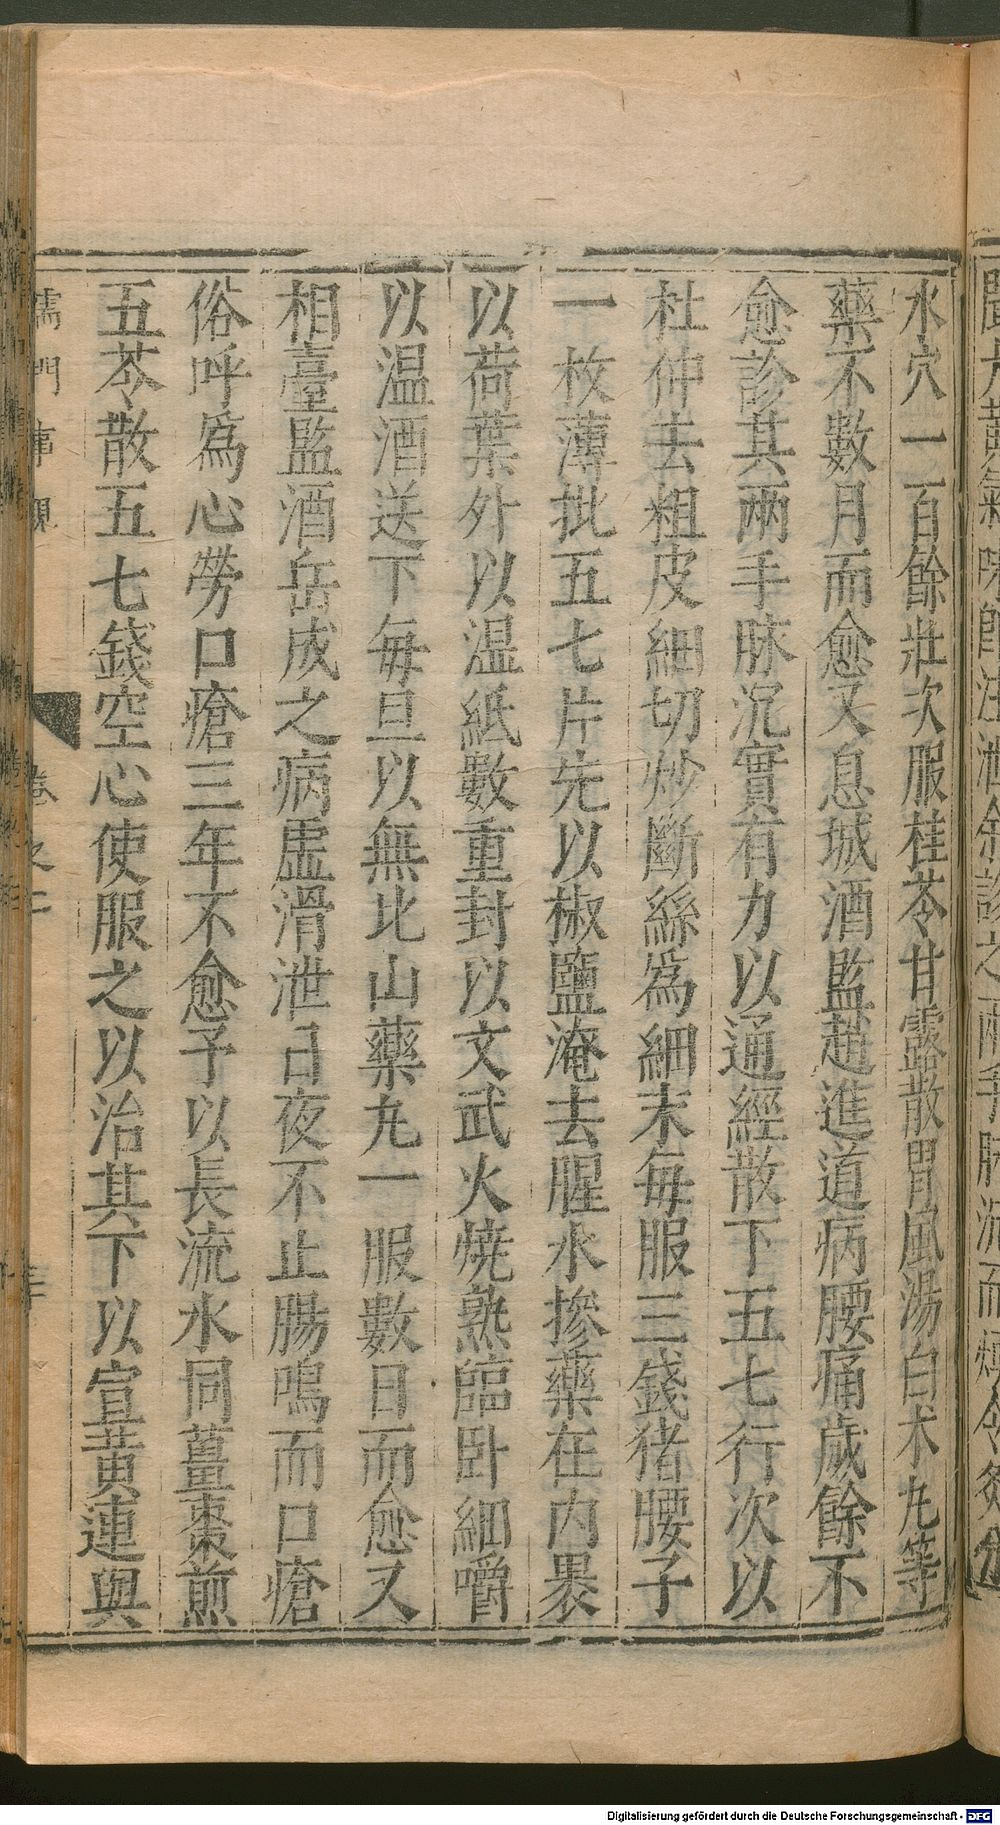 水穴一百餘壯次服桂苓甘露散胃風湯白术丸等
藥不數月而愈又息城酒監趙進道病腰痛歲餘不
愈診其兩手脉沉實有力以通經散下五七行次以
杜仲去粗皮細切炒斷絲爲細末每服三錢猪腰子
一枚薄批五七片先以椒鹽淹去腥水摻藥在内裹
以荷葉外以温紙數重封以文武火燒熟臨卧細嚼
以温酒送下每旦以無比山藥丸一服數日而愈又
相臺監酒岳成之病虛滑泄日夜不止腸鳴而口瘡
俗呼爲心勞口瘡三年不愈予以長流水同薑棗煎
五苓散五七錢空心使服之以治其下以宣黄連與
儒門事親
卷之二
Digitalisierung gefördert durch die Deutsche Forschungsgemeinschaft - DFG